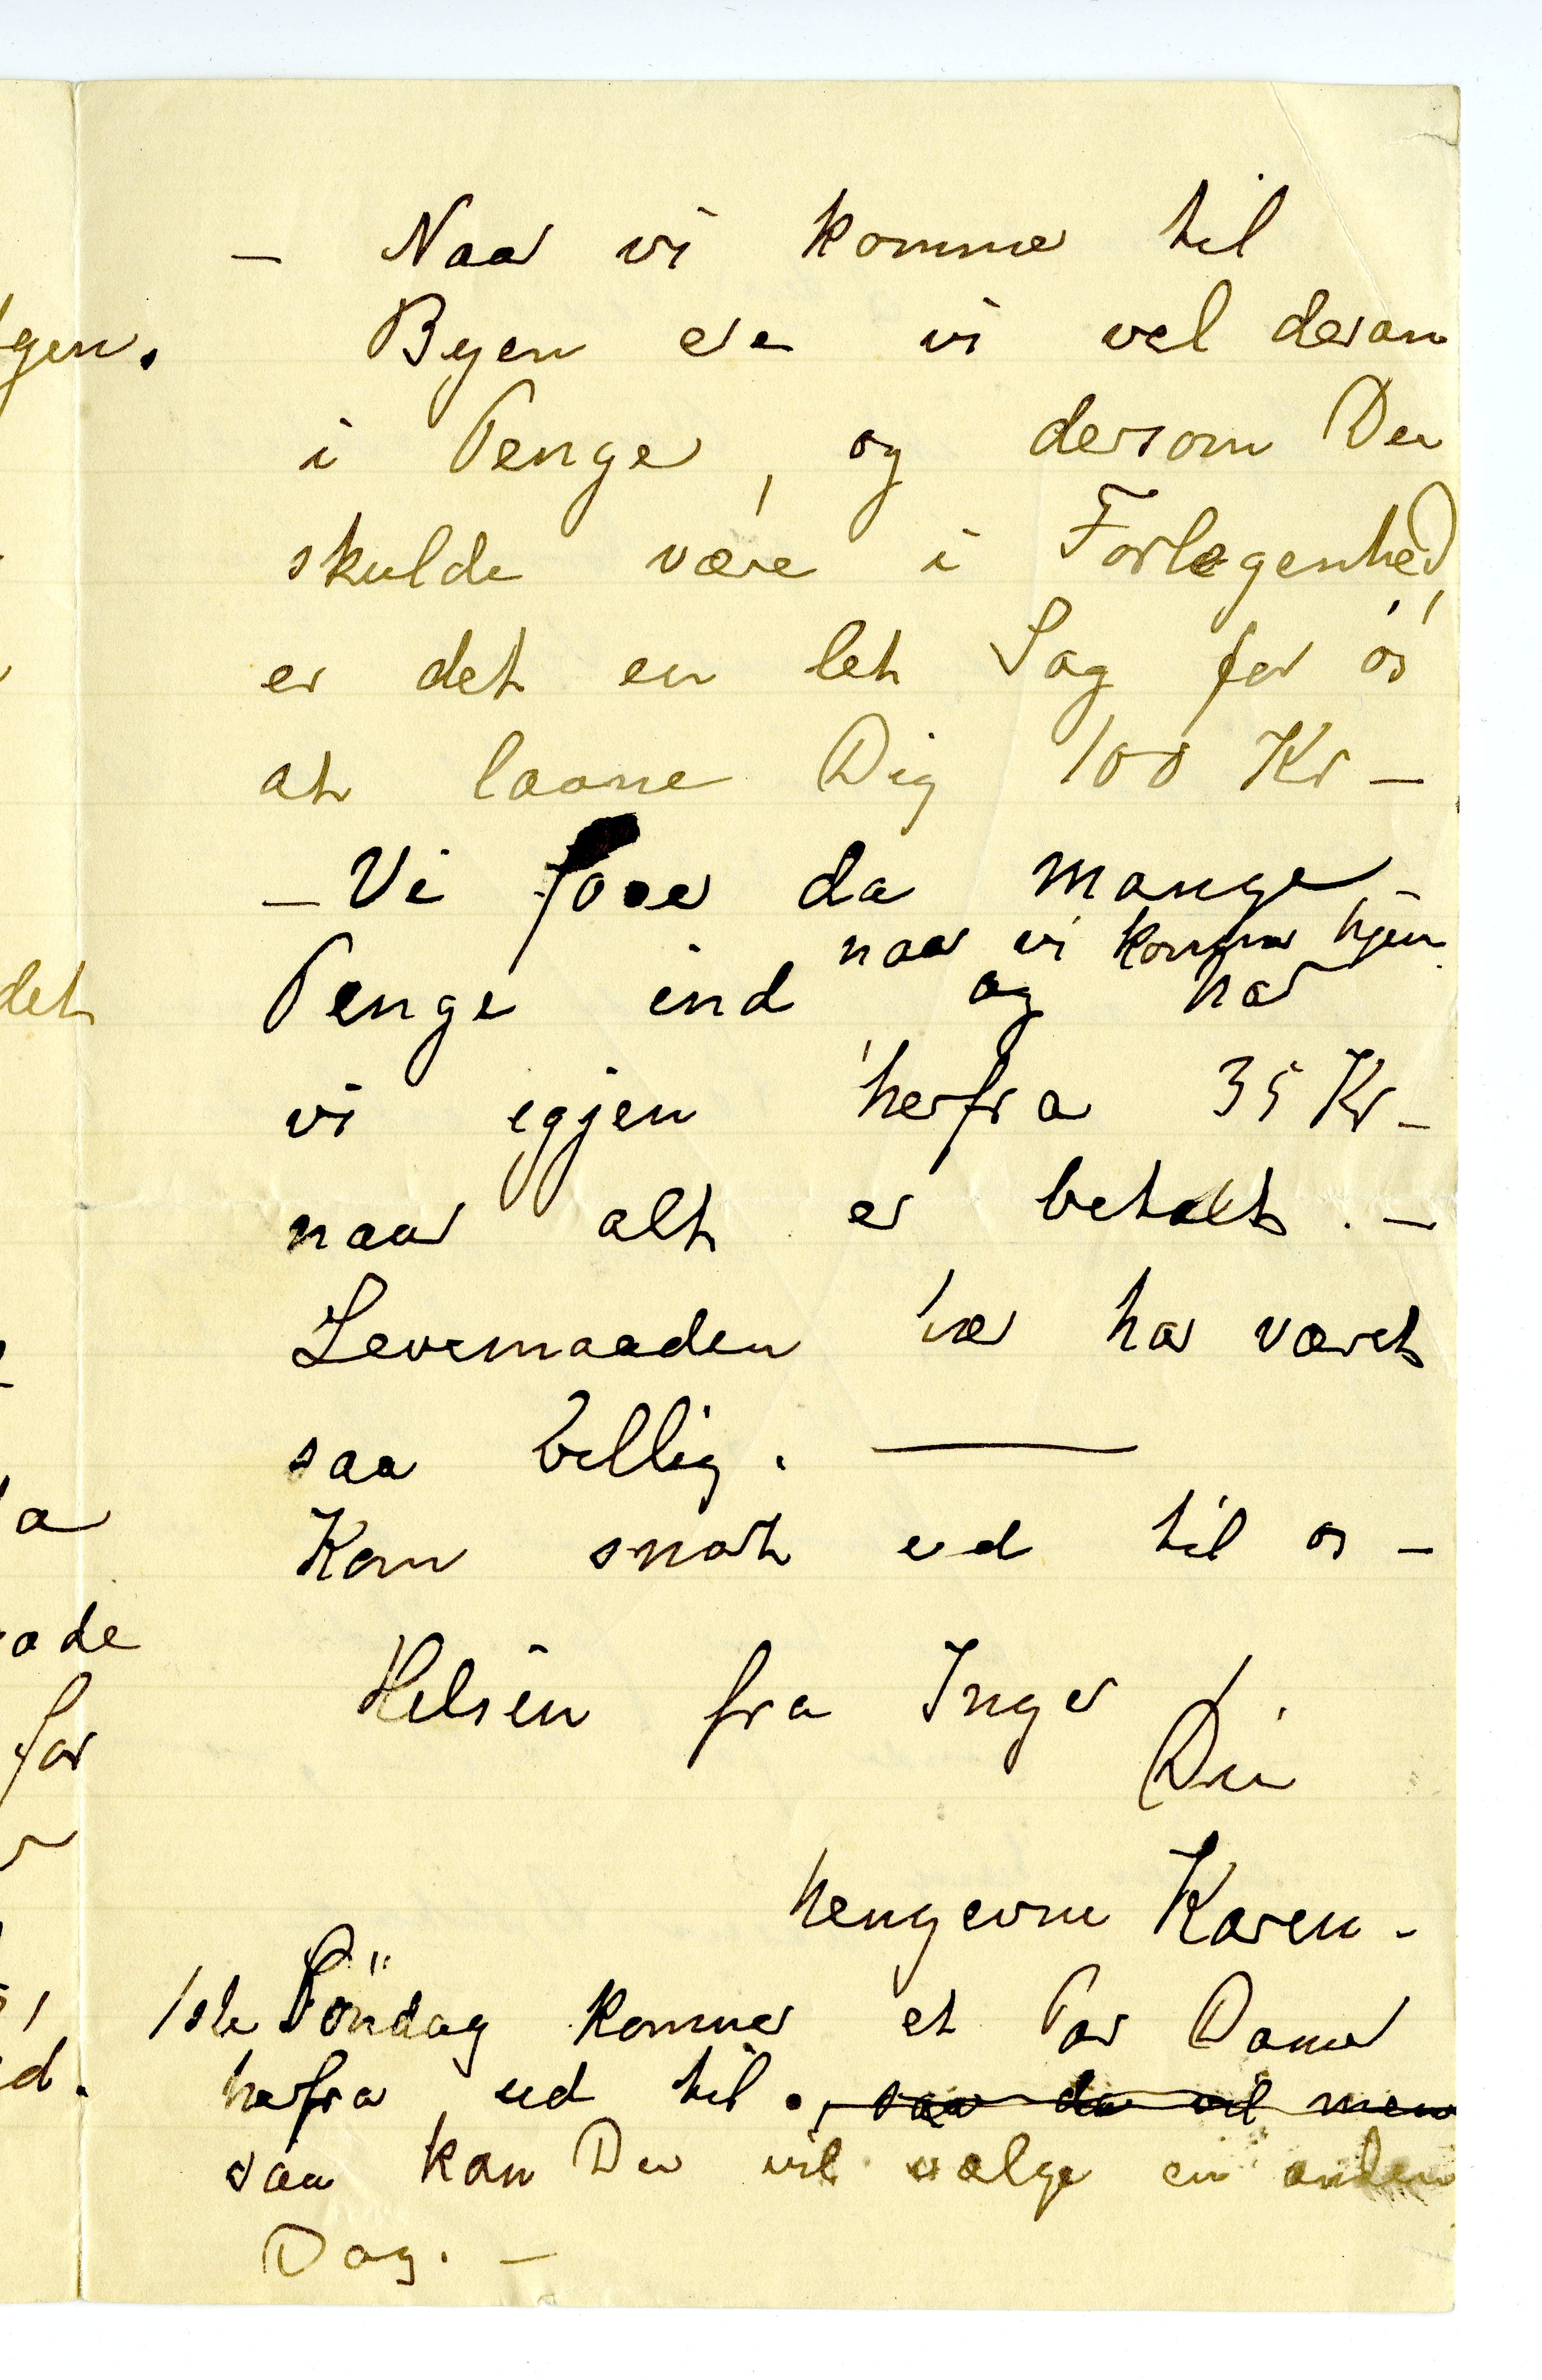 – Naar vi kommer til
Byen ere vi vel deran
i Penge, og dersom Du
skulde være i Forlegenhed,
er det en let Sag for os
at laane Dig 100 Kr –
– Vi faae da mange –
naar vi kommer hjem.
Penge ind og har
vi igjen herfra 35 Kr –
naar alt er betalt. –
Levemaaden her har været
saa billig. —
Kom snart ud til os –
Hilsen fra Inger
Din
hengivne Karen –
1ste Söndag kommer et Par Damer
herfra ud til. , saa da vil men
saa kan Du vel vælge en anden
Dag. –
gen.
det
a
ade
for
d.